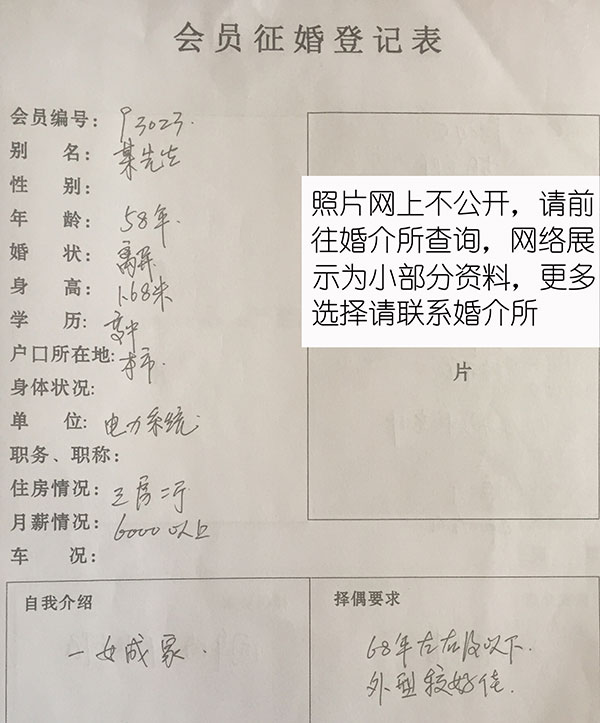 会员征婚登记表
会员编号: 93023.
别 名: 某先生
性 别:
年 龄: 58年.
婚 状: 离异
身 高: 1.68米
学 历: 高中
户口所在地: 本市.
身体状况:
单 位: 电力系统
职务、职称:
住房情况: 三房二厅
月薪情况: 6000以上
车 况:
照片网上不公开，请前
往婚介所查询，网络展
示为小部分资料，更多
选择请联系婚介所
片
自我介绍
一女成家.
择偶要求
68年左右及以下.
外型较好佳.